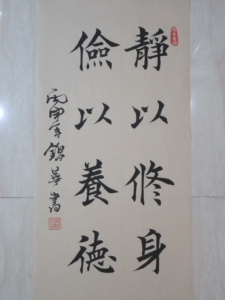 靜以修身
儉以養德
丙申年錦華書